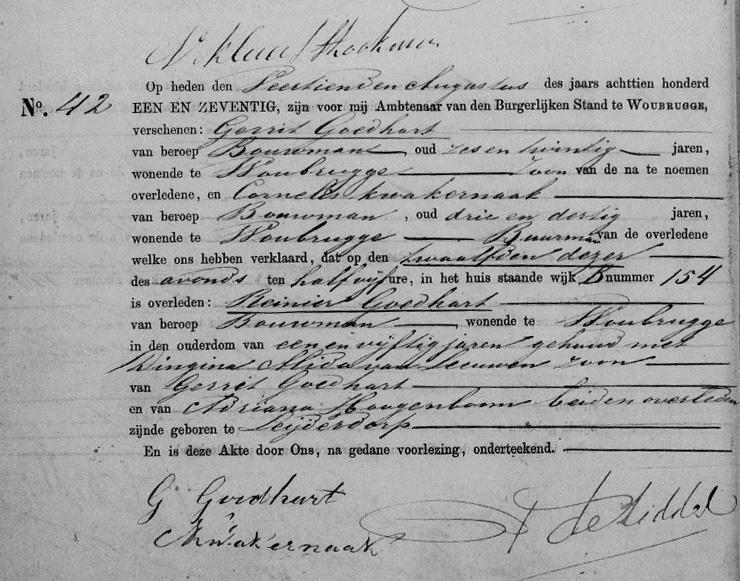 Op heden den Veertienden Augustus des jaars achttien honderd
No. 42 EEN EN ZEVENTIG, zijn voor mij Ambtenaar van den Burgerlijken Stand te WOUBRUGGE,
verschenen: Gerrit Goedhart
van beroep Bouwman, oud zes en twintig jaren,
wonende te Woubrugge Zoon van de na te noemen
overledene, en Cornelis Kwakernaak
van beroep Bouwman, oud drie en dertig jaren,
wonende te Woubrugge Buurman van de overledene
welke ons hebben verklaard, dat op den twaalfden dezer
des avonds ten half vijf ure, in het huis staande wijk B nummer 154
is overleden: Reinier Goedhart
van beroep Bouwman, wonende te Woubrugge
in den ouderdom van een en vijftig jaren gehuwd met
Dingina Alida van Leeuwen zoon
van Gerrit Goedhart
en van Adriana Hoogenboom beiden overleden
zijnde geboren te Leijderdorp
En is deze Akte door Ons, na gedane voorlezing, onderteekend.
G Goedhart
Kwakernaak